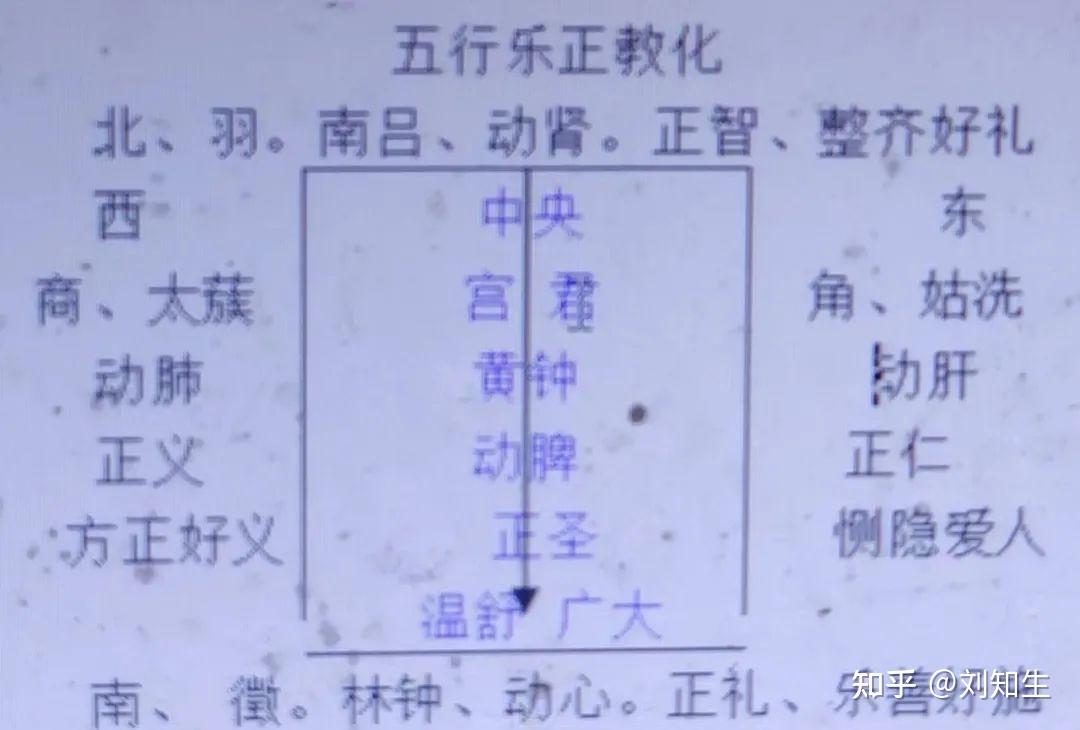 五行乐正教化
北、羽。南吕、动肾。正智、整齐好礼
西 中央 东
商、太蔟 宫 君 角、姑洗
动肺 黄钟 动肝
正义 动脾 正仁
方正好义 正圣 恻隐爱人
温舒 广大
南、徵。林钟、动心。正礼、乐善好施
知乎 @刘知生